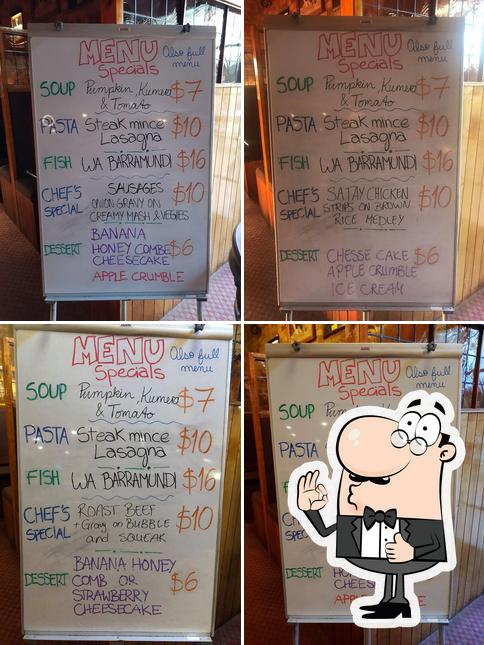 MENU Also full
Specials menu
SOUP Pumpkin, Kumera $7
& Tomato
PASTA Steak mince $10
Lasagna
FISH WA BARRAMUNDI $16
CHEF'S SAUSAGES $10
SPECIAL ONION GRAVY ON
CREAMY MASH & VEGIES
BANANA
DESSERT HONEY COMBE $6
CHEESECAKE
APPLE CRUMBLE
MENU Also full
Specials menu
SOUP Pumpkin, Kumera $7
& Tomato
PASTA Steak mince $10
Lasagna
FISH WA BARRAMUNDI $16
CHEF'S SATAY CHICKEN $10
SPECIAL STRIPS ON BROWN
RICE MEDLEY
DESSERT CHESSE CAKE $6
APPLE CRUMBLE
ICE CREAM
MENU Also full
Specials menu
SOUP Pumpkin, Kumera $7
& Tomato
PASTA Steak mince $10
Lasagna
FISH WA BARRAMUNDI $16
CHEF'S ROAST BEEF $10
SPECIAL + Gravy on BUBBLE
and SQUEAK
BANANA HONEY
DESSERT COMB OR $6
STRAWBERRY
CHEESECAKE
MENU Also full
Specials menu
SOUP
PASTA
DESSERT